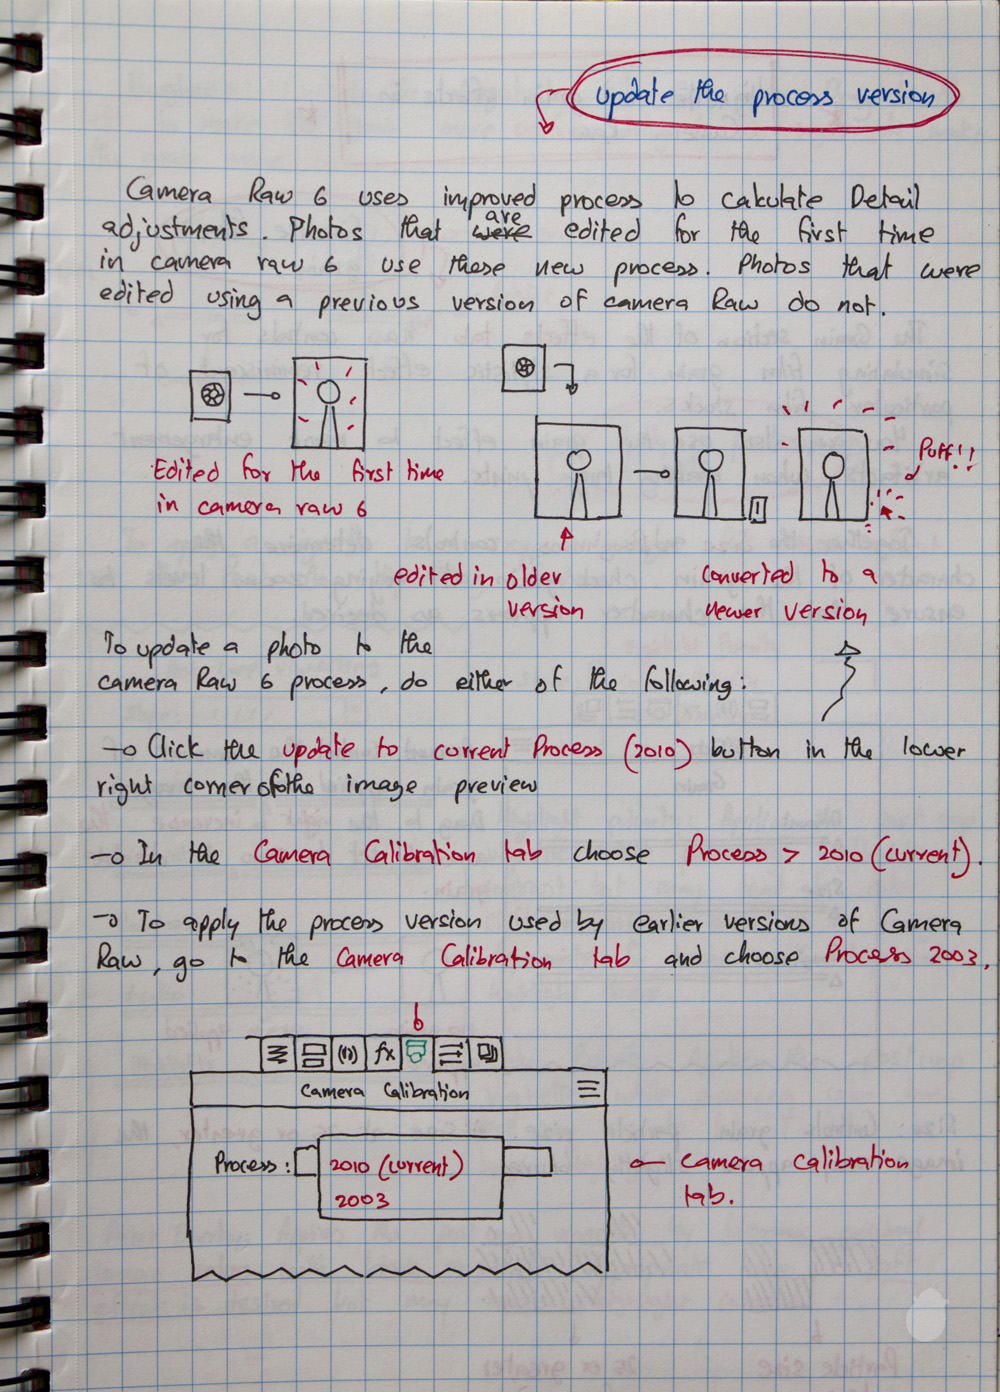 update the process version
Camera Raw 6 uses improved process to calculate Detail
adjustments. Photos that are edited for the first time
in camera raw 6 use these new process. Photos that were
edited using a previous version of camera Raw do not.
Edited for the first time
in camera raw 6
Puff!!
edited in older
version
converted to a
newer version
To update a photo to the
camera Raw 6 process, do either of the following:
Click the update to current Process (2010) button in the lower
right corner of the image preview
In the Camera Calibration tab choose Process > 2010 (current).
To apply the process version used by earlier versions of Camera
Raw, go to the Camera Calibration tab and choose Process 2003.
fx
Camera Calibration
Process: 2010 (current)
2003
camera calibration
tab.